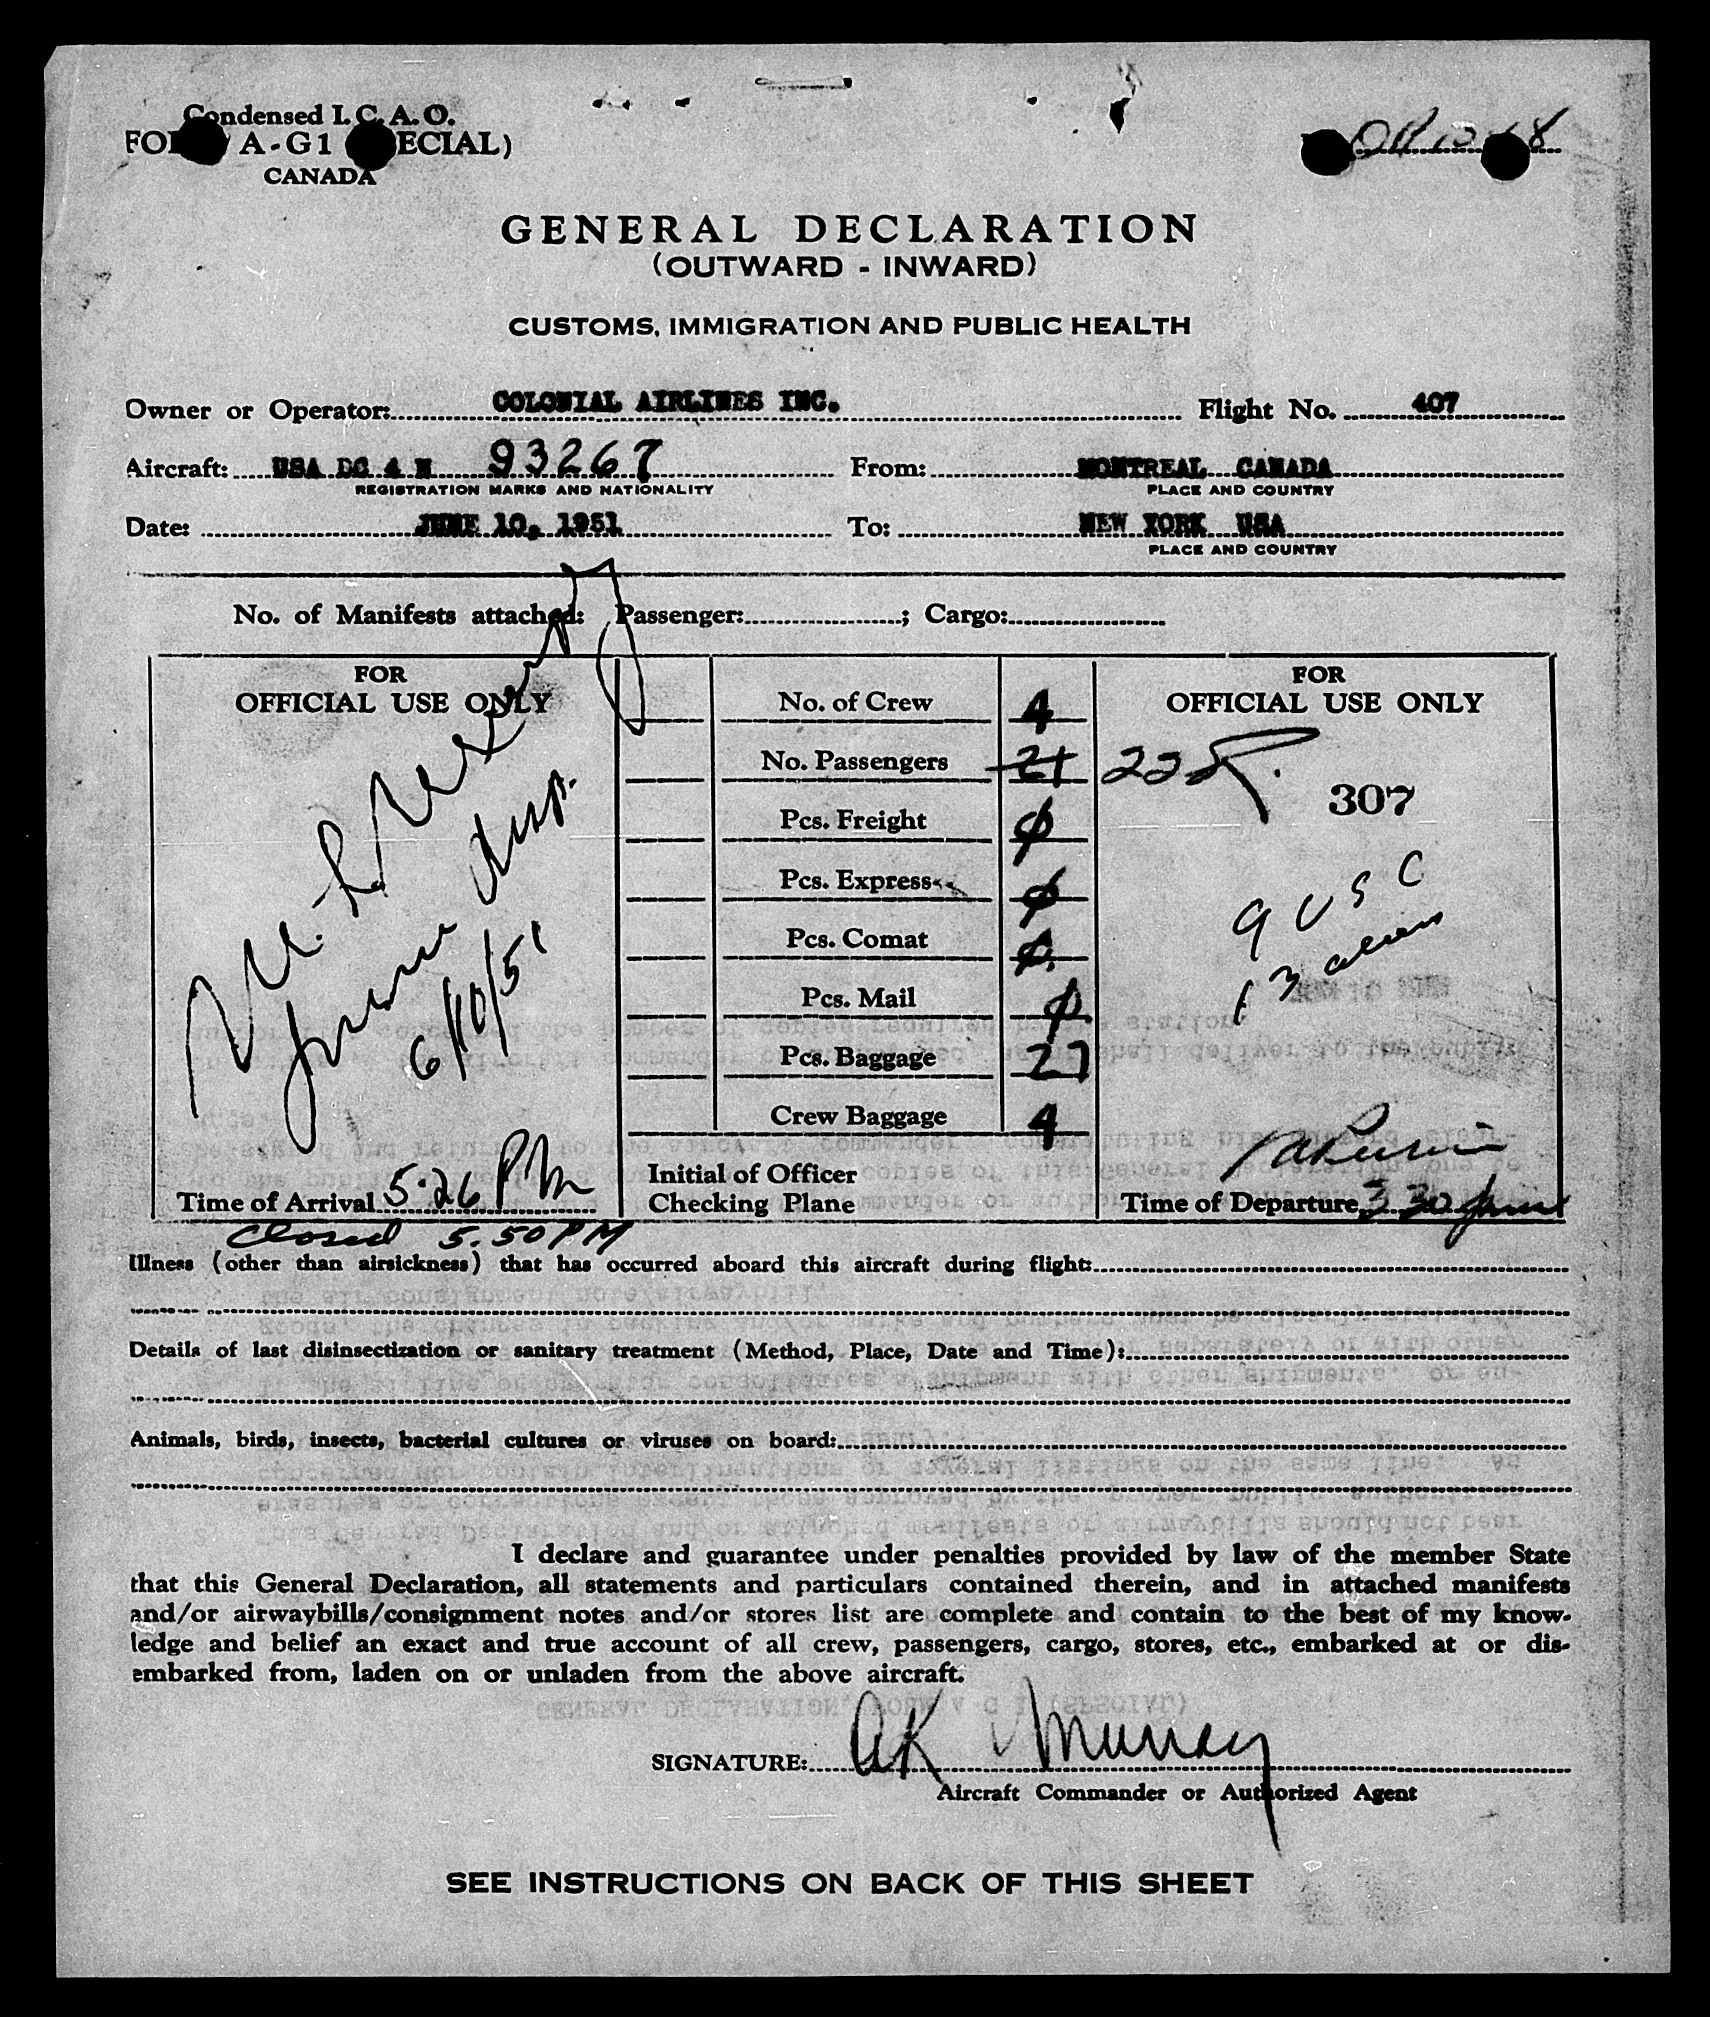 Condensed I. C. A. O.
A-G1
CANADA
GENERAL DECLARATION
(OUTWARD - INWARD)
CUSTOMS, IMMIGRATION AND PUBLIC HEALTH
Owner or Operator: COLONIAL AIRLINES INC. Flight No. 407
Aircraft: USA DC 4 N 93267 From: MONTREAL CANADA
REGISTRATION MARKS AND NATIONALITY PLACE AND COUNTRY
Date: JUNE 10, 1951 To: NEW YORK USA
PLACE AND COUNTRY
No. of Manifests attached: Passenger: ; Cargo:
FOR
OFFICIAL USE ONLY
6/10/51
Time of Arrival 5.26 PM
Closed 5.50 PM
No. of Crew 4
No. Passengers 21
Pcs. Freight ϕ
Pcs. Express ϕ
Pcs. Comat ϕ
Pcs. Mail ϕ
Pcs. Baggage 27
Crew Baggage 4
Initial of Officer
Checking Plane
FOR
OFFICIAL USE ONLY
22
307
9 USC
13 aliens
Time of Departure 3 30 pm
Illness (other than airsickness) that has occurred aboard this aircraft during flight:
Details of last disinsectization or sanitary treatment (Method, Place, Date and Time):
Animals, birds, insects, bacterial cultures or viruses on board:
I declare and guarantee under penalties provided by law of the member State
that this General Declaration, all statements and particulars contained therein, and in attached manifests
and/or airwaybills/consignment notes and/or stores list are complete and contain to the best of my know-
ledge and belief an exact and true account of all crew, passengers, cargo, stores, etc., embarked at or dis-
embarked from, laden on or unladen from the above aircraft.
SIGNATURE: AK Murray
Aircraft Commander or Authorized Agent
SEE INSTRUCTIONS ON BACK OF THIS SHEET